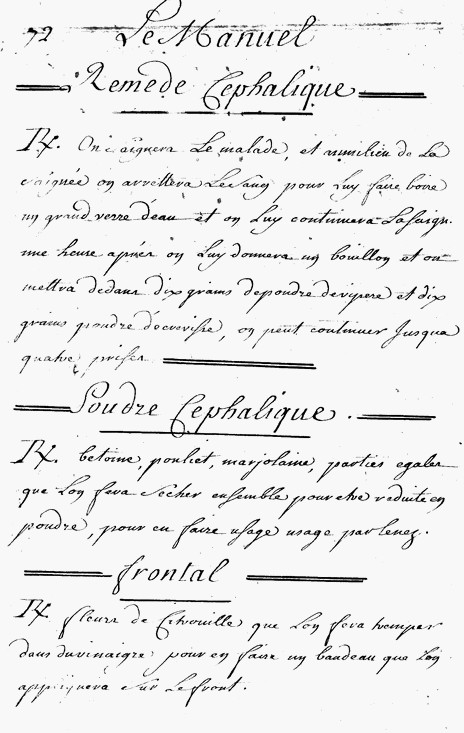 72 Le Manuel
Remede Cephalique
Rx. On saignera Le malade, et aumilieu de La
saignée on arrettera Lesang pour Luy faire boire
un grand verre deau et on Luy continuera Lasaign.
une heure aprés on Luy donnera un bouillon et on
mettra dedans dix grains depoudre devipere et dix
grains poudre decrevisse, on peut continuer Jusqua
quatre prises
Poudre Cephalique.
Rx. betoine, pouliet, marjolaine, parties egales
que Lon fera secher ensemble pour etre reduite en
poudre, pour en faire usage usage par lenez.
frontal
Rx fleurs de Citrouille que Lon fera tremper
dans duvinaigre pour en faire un bandeau que Lon
appliquera sur Lefront.